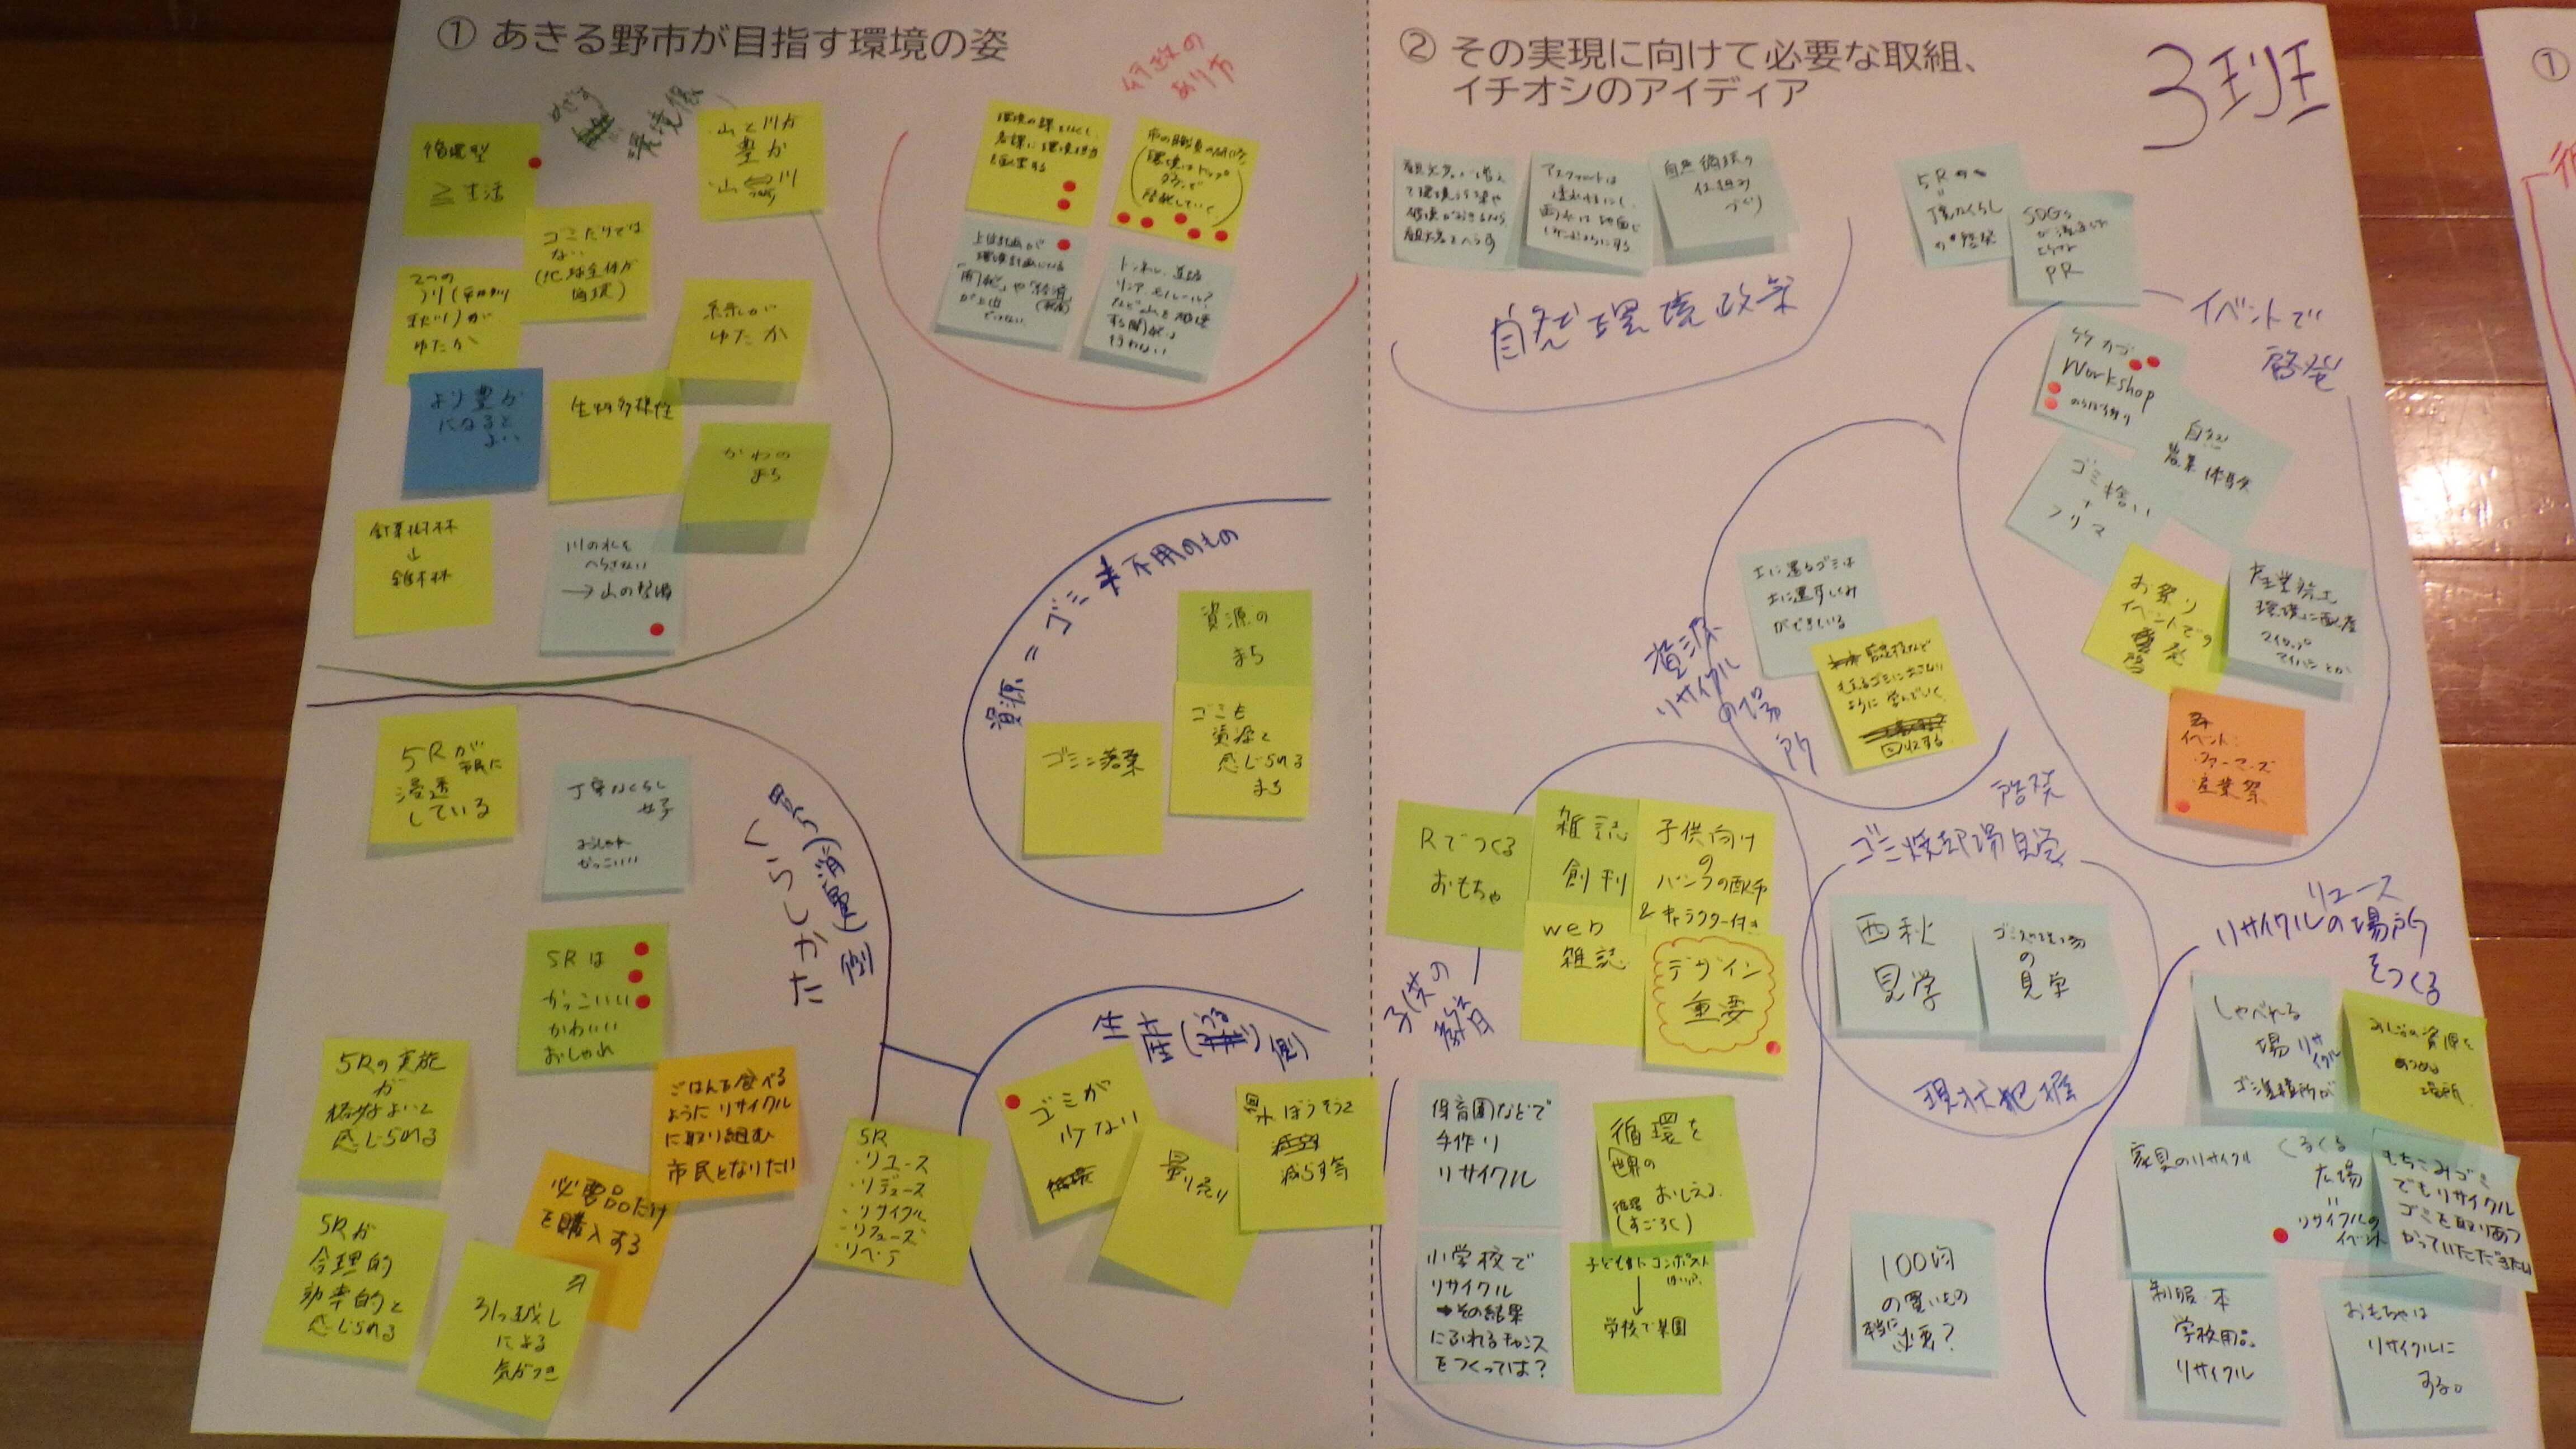 ① あきる野市が目指す環境の姿
環境像
循環型
≧生活
山と川が
豊か
ゴミだけでは
ない
(地球全体が
循環)
2つの
ゆたか
緑が
ゆたか
より豊か
になると
よい
生物多様性
かわの
まち
針葉樹林
↓
雑木林
川の水を
へらさない
→山の整備
行政の
あり方
環境の課をなくし、
各課に環境担当
を配置する
市の職員の
環境はトップ
ダウンで
上位計画が
「開発」や「経済」
が上位
ではない
トンネル、道路
リニア、モノレール?
など山を破壊
する開発は
行わない
資源=ゴミ≠不用のもの
資源の
まち
ゴミも
資源と
感じられる
まち
5Rが
市民に
浸透
している
丁寧なくらし
女子
おしゃれ
かっこいい
5Rは
かっこいい
かわいい
おしゃれ
5Rの実施
が
格好よいと
感じられる
ごはんを食べる
ようにリサイクル
に取り組む
市民となりたい
必要品だけ
を購入する
5Rが
合理的
効率的と
感じられる
引っ越し
による
気づき
5R
・リユース
・リデュース
・リサイクル
・リフューズ
・リペア
生産(うる)側
ゴミが
少ない
量り売り
個ほうそうを
減らす等
② その実現に向けて必要な取組、
イチオシのアイディア
3班
観光客が増え
て環境汚染や
観光客をへらす
アスファルトは
透水性にし、
雨水は地面に
自然循環の
仕組み
づくり
自然環境政策
5Rの
丁寧なくらし
の啓発
SDGs
PR
イベントで
啓発
竹カゴ
Workshop
自然
農業体験
ゴミ拾い
+
フリマ
お祭り
イベントでの
啓発
イベント:
ファーマーズ
産業祭
土に還るゴミは
土に還すしくみ
ができている
ように学んでいく
資源
リサイクル
の場
所
啓発
ゴミ焼却場見学
西秋
見学
の
見学
現状把握
Rでつくる
おもちゃ
雑誌
創刊
子供向け
の
パンフの配布
&キャラクター付き
web
雑誌
デザイン
重要
子供の
教育
保育園などで
手作り
リサイクル
循環を
世界の
循環 おしえる
(すごろく)
小学校で
リサイクル
→その結果
にふれるチャンス
をつくっては?
↓
学校で菜園
100均
の買いもの
本当に
必要?
リユース
リサイクルの場所
をつくる
しゃべれる
場 リサイクル
ゴミ集積所が
場所
家具のリサイクル
くるくる
広場
=
リサイクルの
イベント
もちこみゴミ
でもリサイクル
ゴミを取りあつ
かっていただきたい
制服・本
学校用品
リサイクル
おもちゃは
リサイクルに
する。
①